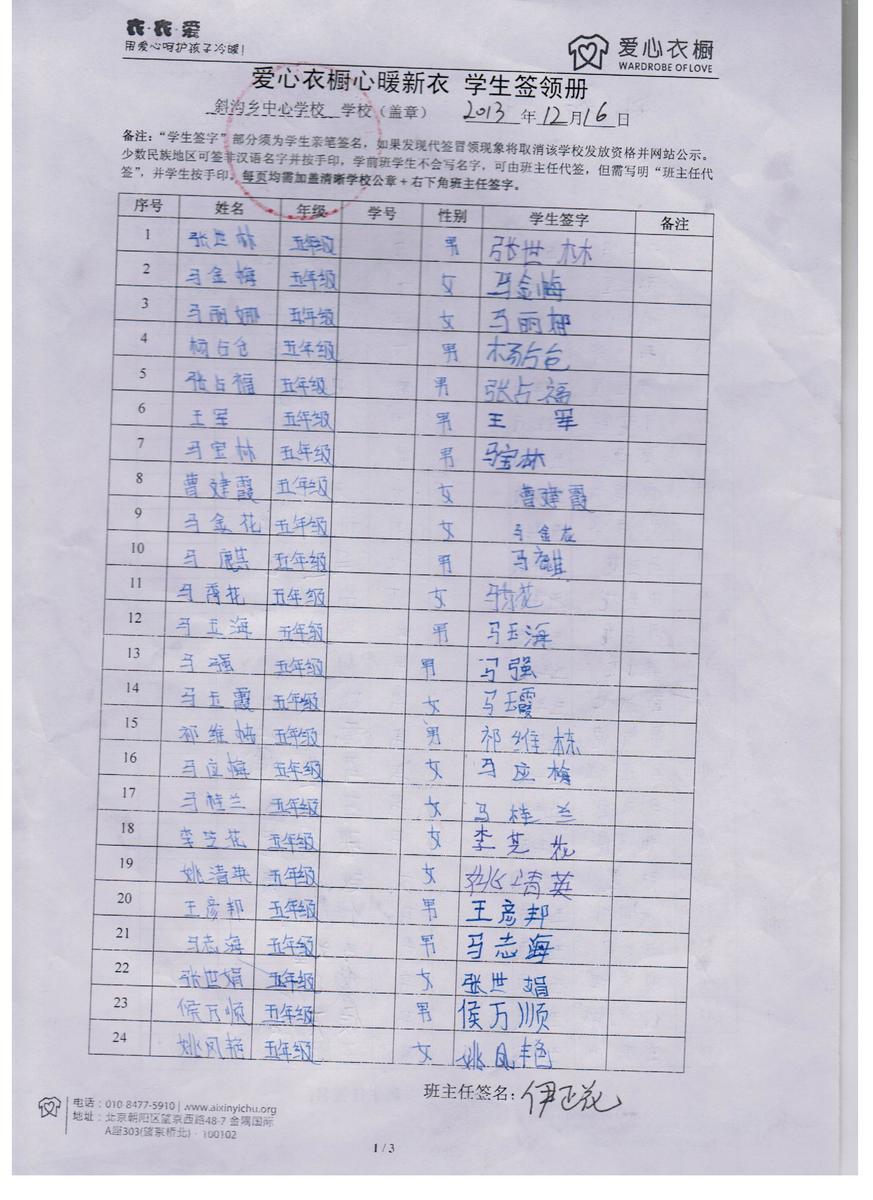 衣·衣·爱
用爱心呵护孩子冷暖！
爱心衣橱
WARDROBE OF LOVE
爱心衣橱心暖新衣 学生签领册
斜沟乡中心学校 学校（盖章） 2013 年 12 月 16 日
备注：“学生签字”部分须为学生亲笔签名，如果发现代签冒领现象将取消该学校发放资格并网站公示。
少数民族地区可签非汉语名字并按手印，学前班学生不会写名字，可由班主任代签，但需写明“班主任代
签”，并学生按手印。每页均需加盖清晰学校公章+右下角班主任签字。
序号 姓名 年级 学号 性别 学生签字 备注
1 张世林 五年级 男 张世林
2 马金梅 五年级 女 马金梅
3 马丽娜 五年级 女 马丽娜
4 杨占仓 五年级 男 杨占仓
5 张占福 五年级 男 张占福
6 王军 五年级 男 王军
7 马宝林 五年级 男 马宝林
8 曹建霞 五年级 女 曹建霞
9 马金花 五年级 女 马金花
10 马麒 五年级 男
11 五年级 女
12 马玉海 五年级 男 马玉海
13 马强 五年级 男 马强
14 马玉霞 五年级 女 马玉霞
15 祁维栋 五年级 男 祁维栋
16 马应梅 五年级 女 马应梅
17 马桂兰 五年级 女 马桂兰
18 李芝花 五年级 女 李芝花
19 姚清英 五年级 女 姚清英
20 王彦邦 五年级 男 王彦邦
21 马志海 五年级 男 马志海
22 张世娟 五年级 女 张世娟
23 侯万顺 五年级 男 侯万顺
24 姚凤艳 五年级 女 姚凤艳
班主任签名：伊正花
电话：010-8477-5910 | www.aixinyichu.org
地址：北京朝阳区望京西路48-7 金隅国际
A座303(望京桥北)·100102
1 / 3